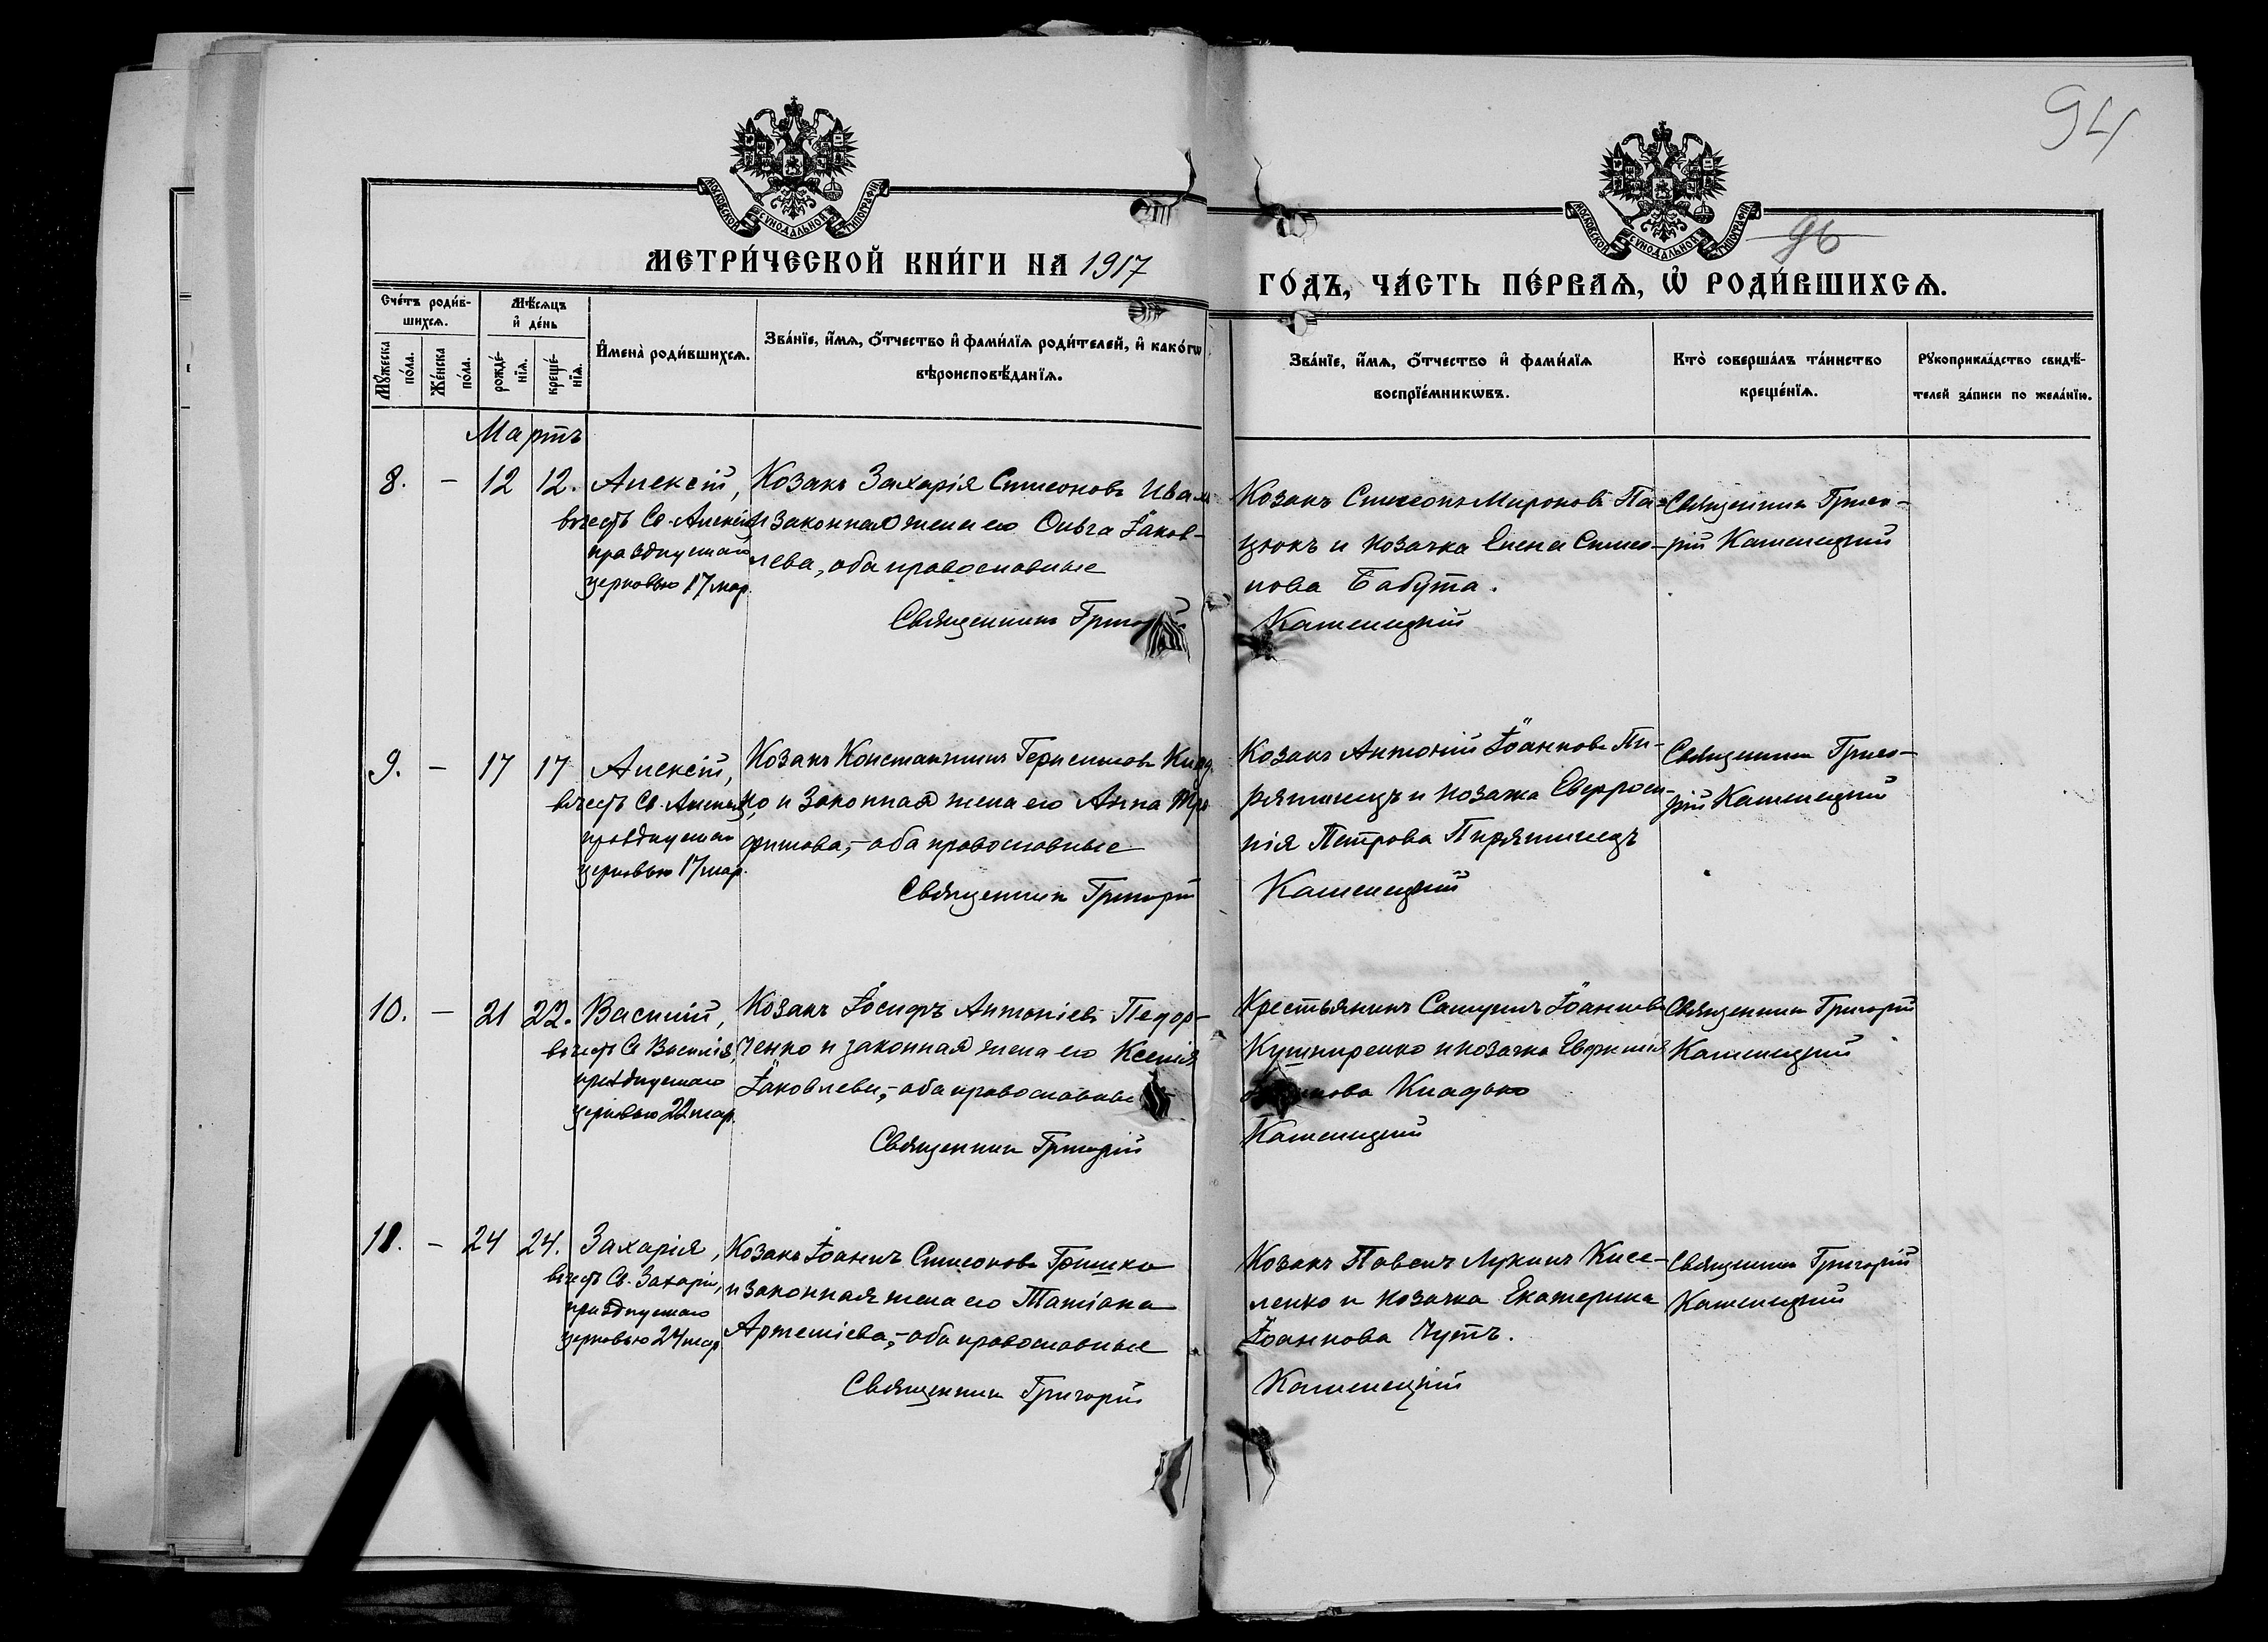 94
МОСКОВСКОЙ СѴНОДАЛЬНОЙ ТИПОГРАФІИ
МОСКОВСКОЙ СѴНОДАЛЬНОЙ ТИПОГРАФІИ
96
МЕТРИ́ЧЕСКОЙ КНИ́ГИ НА 1917
ГО́ДЪ, ЧА́СТЬ ПЕ́РВАѦ, Ѡ҆ РОДИ́ВШИХСѦ.
Сче́тъ роди́в-
шихсѧ.
Мѣ́сѧцъ
и҆ де́нь
Мꙋ́жеска
по́ла.
Же́нска
по́ла.
рожде́-
нїѧ.
креще́-
нїѧ.
И҆мена̀ роди́вшихсѧ.
Зва́нїе, и҆́мѧ, ѻ҆́тчество и҆ фами́лїѧ роди́телей, и҆ како́гѡ
вѣроисповѣ́данїѧ.
Зва́нїе, и҆́мѧ, ѻ҆́тчество и҆ фами́лїѧ
воспрїе́мникѡвъ.
Кто̀ соверша́лъ та́инство
креще́нїѧ.
Рꙋкоприкла́дство свидѣ́-
телей за́писи по жела́нїю.
Мартъ
8. – 12 12. Алексій,
въ честь Св. Алексія
празднуемаго
церковью 17 мар.
Козакъ Захарія Симеоновъ
и законная жена его Ольга Іаков-
лева, оба православные
Священникъ Григорій
Козакъ Симеонъ Мироновъ Па-
цюкъ и козачка Елена Симео-
нова Бабута.
Каменецкій
Священникъ Григо-
рій Каменецкій
9. – 17 17 Алексій,
въ честь Св. Алексія
празднуемаго
церковью 17 мар.
Козакъ Константинъ Герасимовъ
и законная жена его Анна Тро-
фимова, – оба православные
Священникъ Григорій
Козакъ Антоній Іоанновъ Пи-
рятинецъ и козачка Евфроси-
нія Петрова Пирятинецъ
Каменецкій
Священникъ Григо-
рій Каменецкій
10. – 21 22. Василій,
въ честь Св. Василія,
празднуемаго
церковью 22 мар.
Козакъ Іосифъ Антоніевъ Педор-
ченко и законная жена его Ксенія
Іаковлева, – оба православные
Священникъ Григорій
Крестьянинъ Самуилъ Іоанновъ
Кушниренко и козачка Евфимія
Кладько
Каменецкій
Священникъ Григорій
Каменецкій
11. – 24 24. Захарія,
въ честь Св. Захаріи,
празднуемаго
церковью 24 мар.
Козакъ Іоаннъ Симеоновъ Гришко
и законная жена его Татіана
Артеміева, – оба православные
Священникъ Григорій
Козакъ Павелъ Лукинъ Кисе-
ленко и козачка Екатерина
Іоаннова Чутъ.
Каменецкій
Священникъ Григорій
Каменецкій